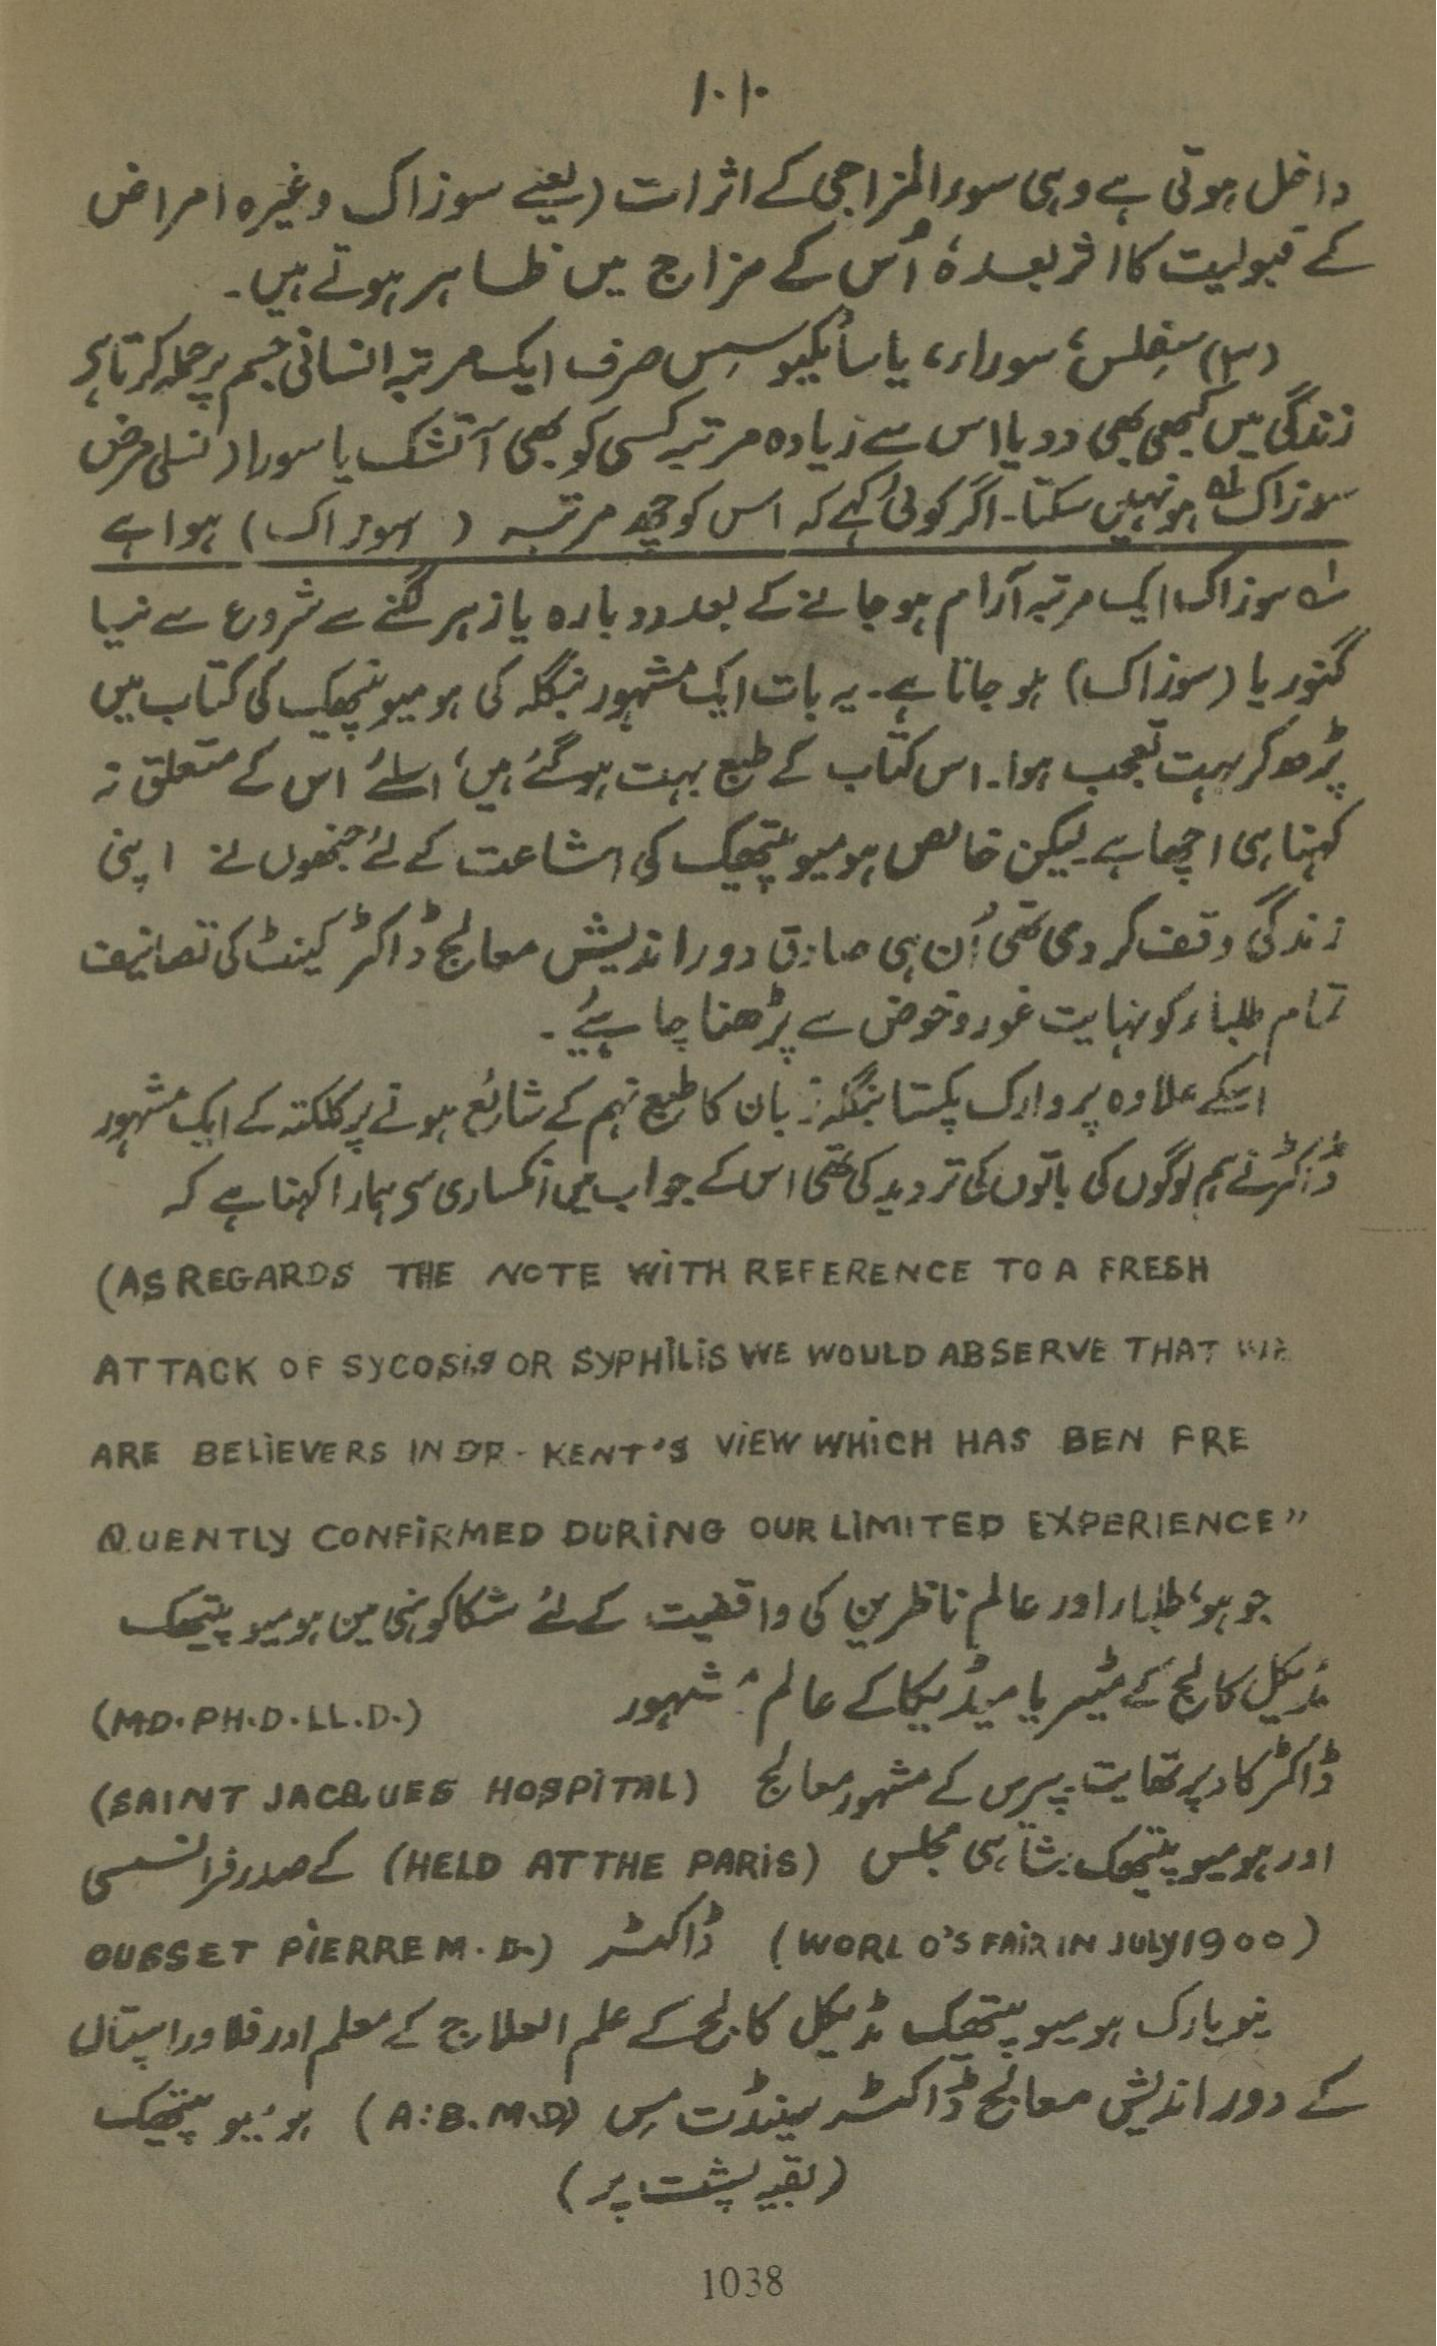 ۱۰۱۰
داخل ہوتی ہے وہی سوء المزاجی کے اثرات (یعنے سوزاک وغیرہ امراض
کے قبولیت کا اثر بعدہٗ اُس کے مزاج میں ظاہر ہوتے ہیں۔
(۳) سفلس، سوراء، یا سائیکوسس صرف ایک مرتبہ انسانی جسم پر حملہ کرتا ہے
زندگی میں کبھی بھی دو یا اس سے زیادہ مرتبہ کسی کو بھی آتشک یا سورا (نسلی مرض
سوزاک ہو نہیں سکتا۔ اگر کوئی کہے کہ اس کو چھ مرتبہ (سوزاک) ہوا ہے
سوزاک ایک مرتبہ آرام ہو جانے کے بعد دوبارہ یا زہر لگنے سے شروع سے نیا
گنوریا (سوزاک) ہو جاتا ہے۔ یہ بات ایک مشہور بنگلہ کی ہومیوپتھیک کی کتاب میں
پڑھ کر بہت تعجب ہوا۔ اس کتاب کے طبع بہت ہو گئے ہیں، اسلئے اس کے متعلق نہ
کہنا ہی اچھا ہے لیکن خالص ہومیوپتھیک کی اشاعت کے لئے جنھوں نے اپنی
زندگی وقف کر دی تھی اُن ہی صادق دور اندیش معالج ڈاکٹر کینٹ کی تصانیف
تمام طلباء کو نہایت غور و خوض سے پڑھنا چاہئے۔
اسکے علاوہ پروارک پکستا بنگلہ زبان کا طبع نہم کے شائع ہونے پر کلکتہ کے ایک مشہور
ڈاکٹر نے ہم لوگوں کی باتوں کی تردید کی تھی اس کے جواب میں انکساری سے ہمارا کہنا ہے کہ
(AS REGARDS THE NOTE WITH REFERENCE TO A FRESH
ATTACK OF SYCOSIS OR SYPHILIS WE WOULD ABSERVE THAT WE
ARE BELIEVERS IN DR. KENT'S VIEW WHICH HAS BEN FRE
QUENTLY CONFIRMED DURING OUR LIMITED EXPERIENCE"
جو ہو، طلباء اور عالم ناظرین کی واقفیت کے لئے شکاگو ہنی مین ہومیوپتیھک
مڈیکل کالج کے میٹیریا میڈیکا کے عالم مشہور (MD.PH.D.LL.D.)
ڈاکٹر کادپرتھایت پیرس کے مشہور معالج (SAINT JACQUES HOSPITAL)
اور ہومیوپتیھک شاہی مجلس (HELD AT THE PARIS) کے صدر فرانسسی
(WORLO'S FAIR IN JULY 1900) ڈاکٹر OUSSET PIERRE M.D.)
نیویارک ہومیوپتیھک مڈیکل کالج کے علم العلاج کے معلم اور فلاور اسپتال
کے دور اندیش معالج ڈاکٹر سینڈت مس (A:B.M.D) ہومیوپتیھک
(بقیہ پشت پر)
1038